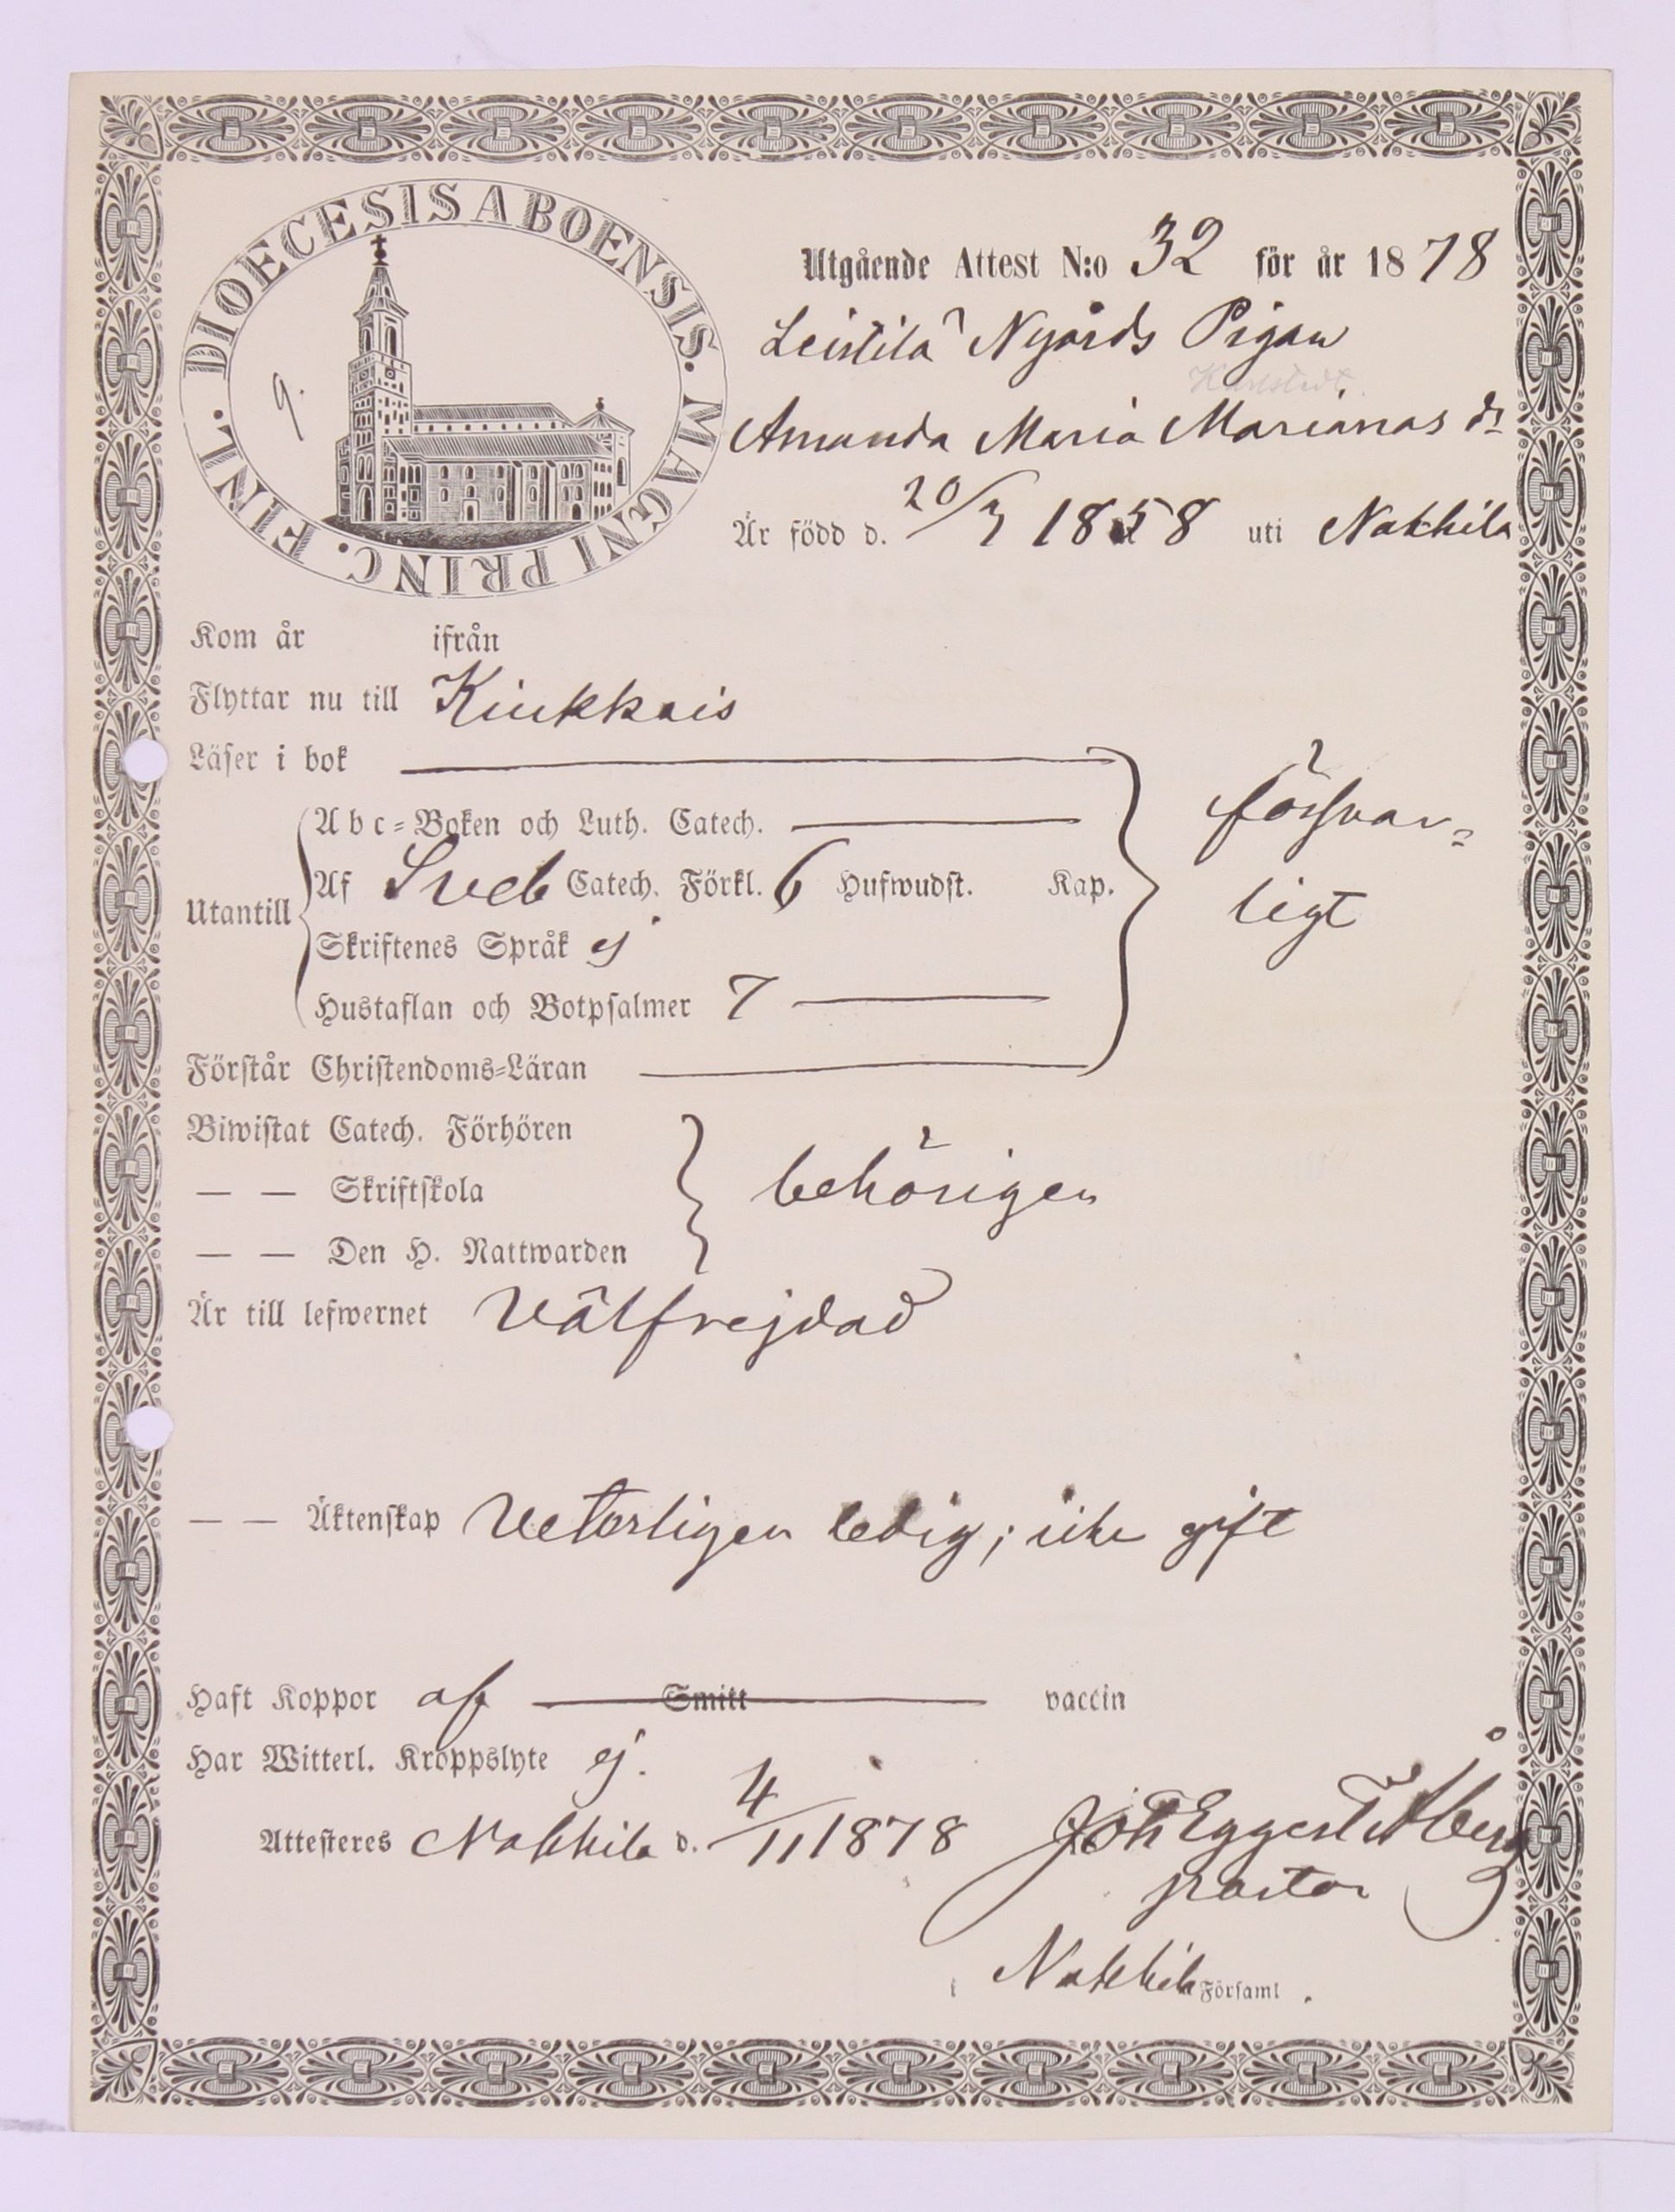 DIOECESIS ABOENSIS. MAGNI PRINC. FINL.
9.
Utgående Attest N:o 32 för år 1878
Leistilä Nygårds Pigan
Karlstedt
Amanda Maria Marianas dr
Är född d. 20/3 1858 uti Nakkila
Kom år ifrån
Flyttar nu till Kiukkais
Läser i bok
Abc-Boken och Luth. Catech.
försvar=
Utantill
Af Sveb Catech. Förkl. 6 Hufwudst. Kap.
ligt
Skriftenes Språk ej
Hustaflan och Botpsalmer 7
Förstår Christendoms-Läran
Biwistat Catech. Förhören
— — Skriftskola
behörigen
— — Den H. Nattwarden
Är till lefwernet Välfrejdad
— — Äktenskap Veterligen ledig; icke gift
Haft Koppor af Smitt vaccin
Har Witterl. Kroppslyte ej.
Attesteres Nakkila d. 4/11 1878 Joh Eggert
pastor
i Nakkila Församl.